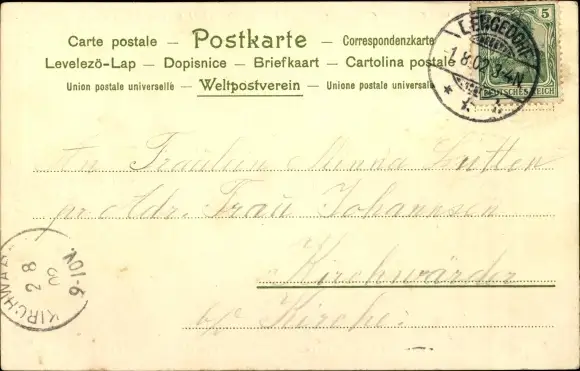 Carte postale — Postkarte — Correspondenzkarte
Levelezö-Lap — Dopisnice — Briefkaart — Cartolina postale
Union postale universelle — Weltpostverein — Unione postale universale
5
DEUTSCHES REICH
1.8.02 3-4N
An Fräulein Minna
pr Adr. Frau Johannsen
Kirchwärder
b/ Kirche.
KIRCHWÄR
2 8